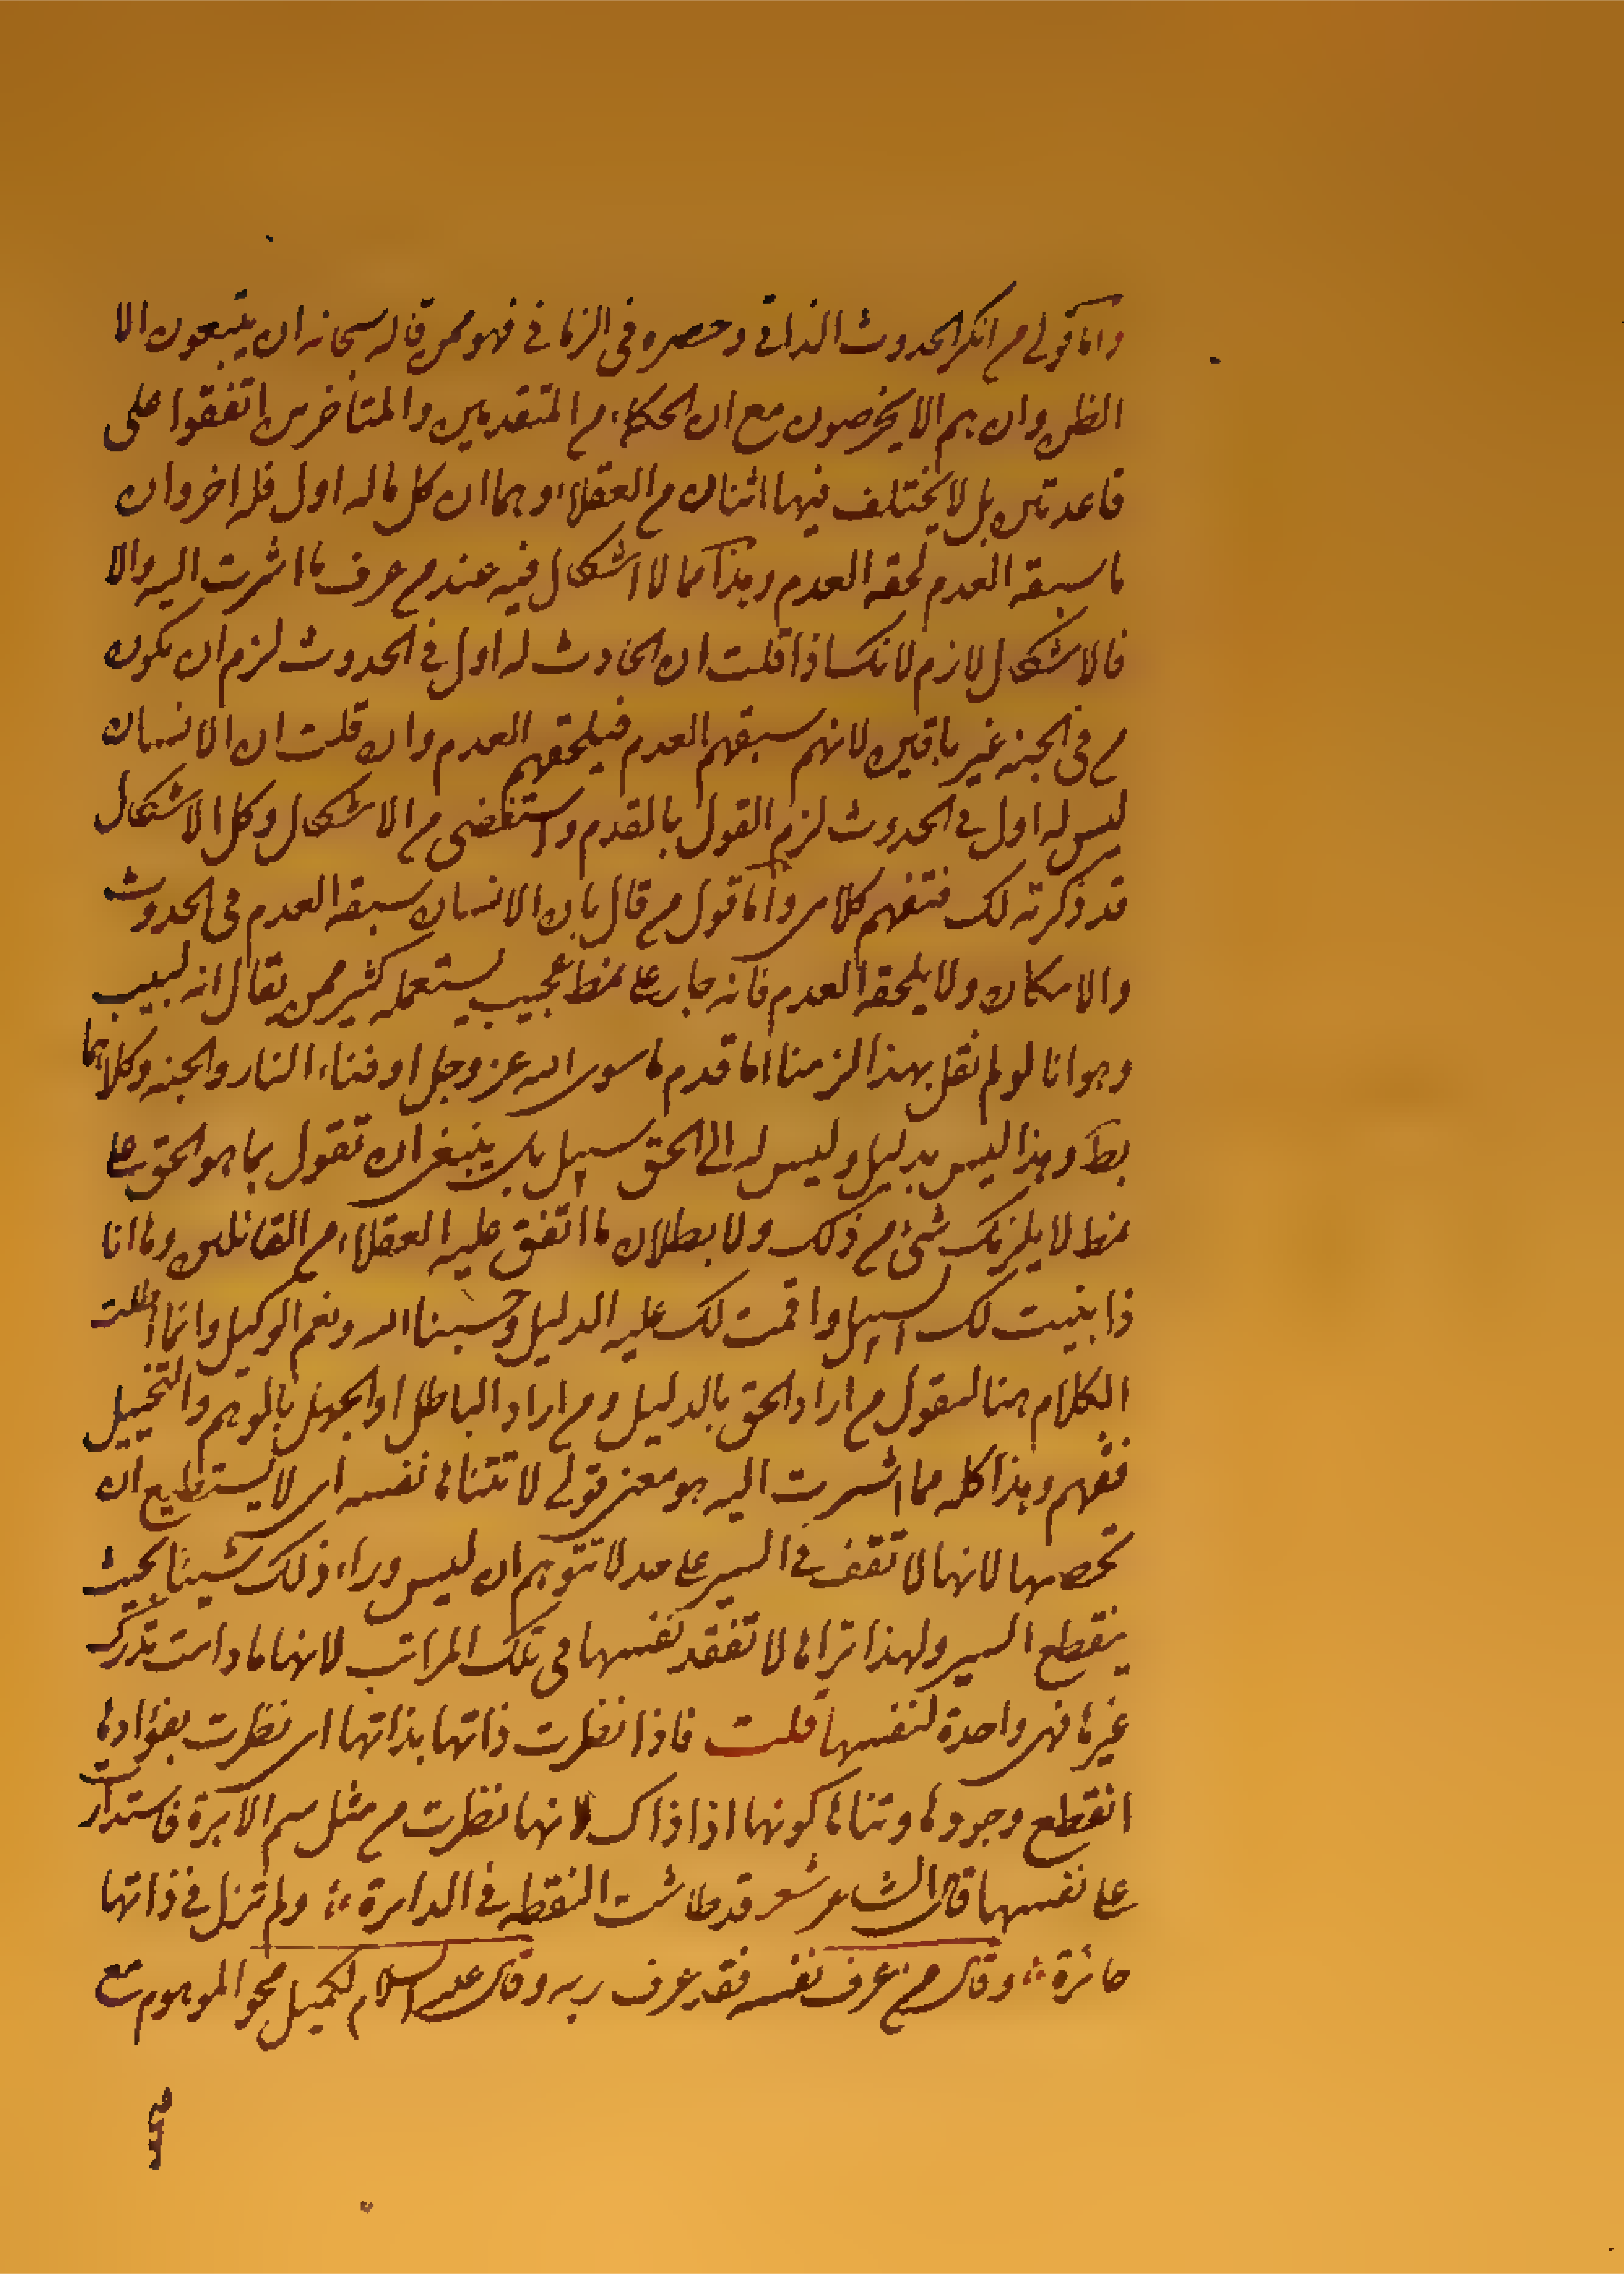 واما قول من انكر الحدوث الذاتي وحصره في الزماني فهو ممن قال سبحانه ان يتبعون الا
الظن وان هم الا يخرصون مع ان الحكماء من المتقدمين والمتاخرين اتفقوا على
قاعدتين بل لا يختلف فيها اثنان من العقلاء وهما ان كل ما له اول فله اخر وان
ما سبقه العدم لحقه العدم وهذا مما لا اشكال فيه عند من عرف ما اشرت اليه والا
فالاشكال لازم لانك اذا قلت ان الحادث له اول في الحدوث لزم ان يكون
من في الجنة غير باقين لانهم سبقهم العدم فيلحقهم العدم وان قلت ان الانسان
ليس له اول في الحدوث لزم القول بالقدم واستقضى من الاشكال وكل الاشكال
قد ذكرته لك فتفهم كلامي واما قول من قال بان الانسان سبقه العدم في الحدوث
والامكان ولا يلحقه العدم فانه جار على نمط عجيب يستعمله كثير ممن يقال انه لبيب
وهو انا لو لم نقل بهذا لزمنا اما قدم ما سوى الله عز وجل او فناء النار والجنة وكلاهما
بط وهذا ليس بدليل وليس له الى الحق سبيل بل ينبغي ان تقول بما هو الحق على
نمط لا يلزمك شيء من ذلك ولا بطلان ما اتفق عليه العقلاء من القائلين وها انا
ذا بنيت لك السبيل واقمت لك عليه الدليل وحسبنا الله ونعم الوكيل وانما اطلت
الكلام هنا ليقول من اراد الحق بالدليل ومن اراد الباطل او الجهل بالوهم والتخييل
ففهم وهذا كله مما اشرت اليه هو معنى قولي لا تتناها نفسه اي لا يستطيع ان
تحصيها لانها لا تقف في السير على حد لا تتوهم ان ليس وراء ذلك شيئا بحيث
ينقطع السير ولهذا تراها لا تفقد نفسها في تلك المراتب لانها ما دامت تدرك
غيرها فهي واحدة لنفسها قلت فاذا نظرت ذاتها بذاتها اي نظرت بفؤادها
انقطع وجودها وتناها كونها اذا ذاك لانها نظرت من مثل سم الابرة فاستدارت
على نفسها قال الشاعر شعر قد طاشت النقطه في الدايرة ؞ ولم تزل في ذاتها
حائرة ؞ وقال من عرف نفسه فقد عرف ربه وقال عليه السلام لكميل محو الموهوم مع